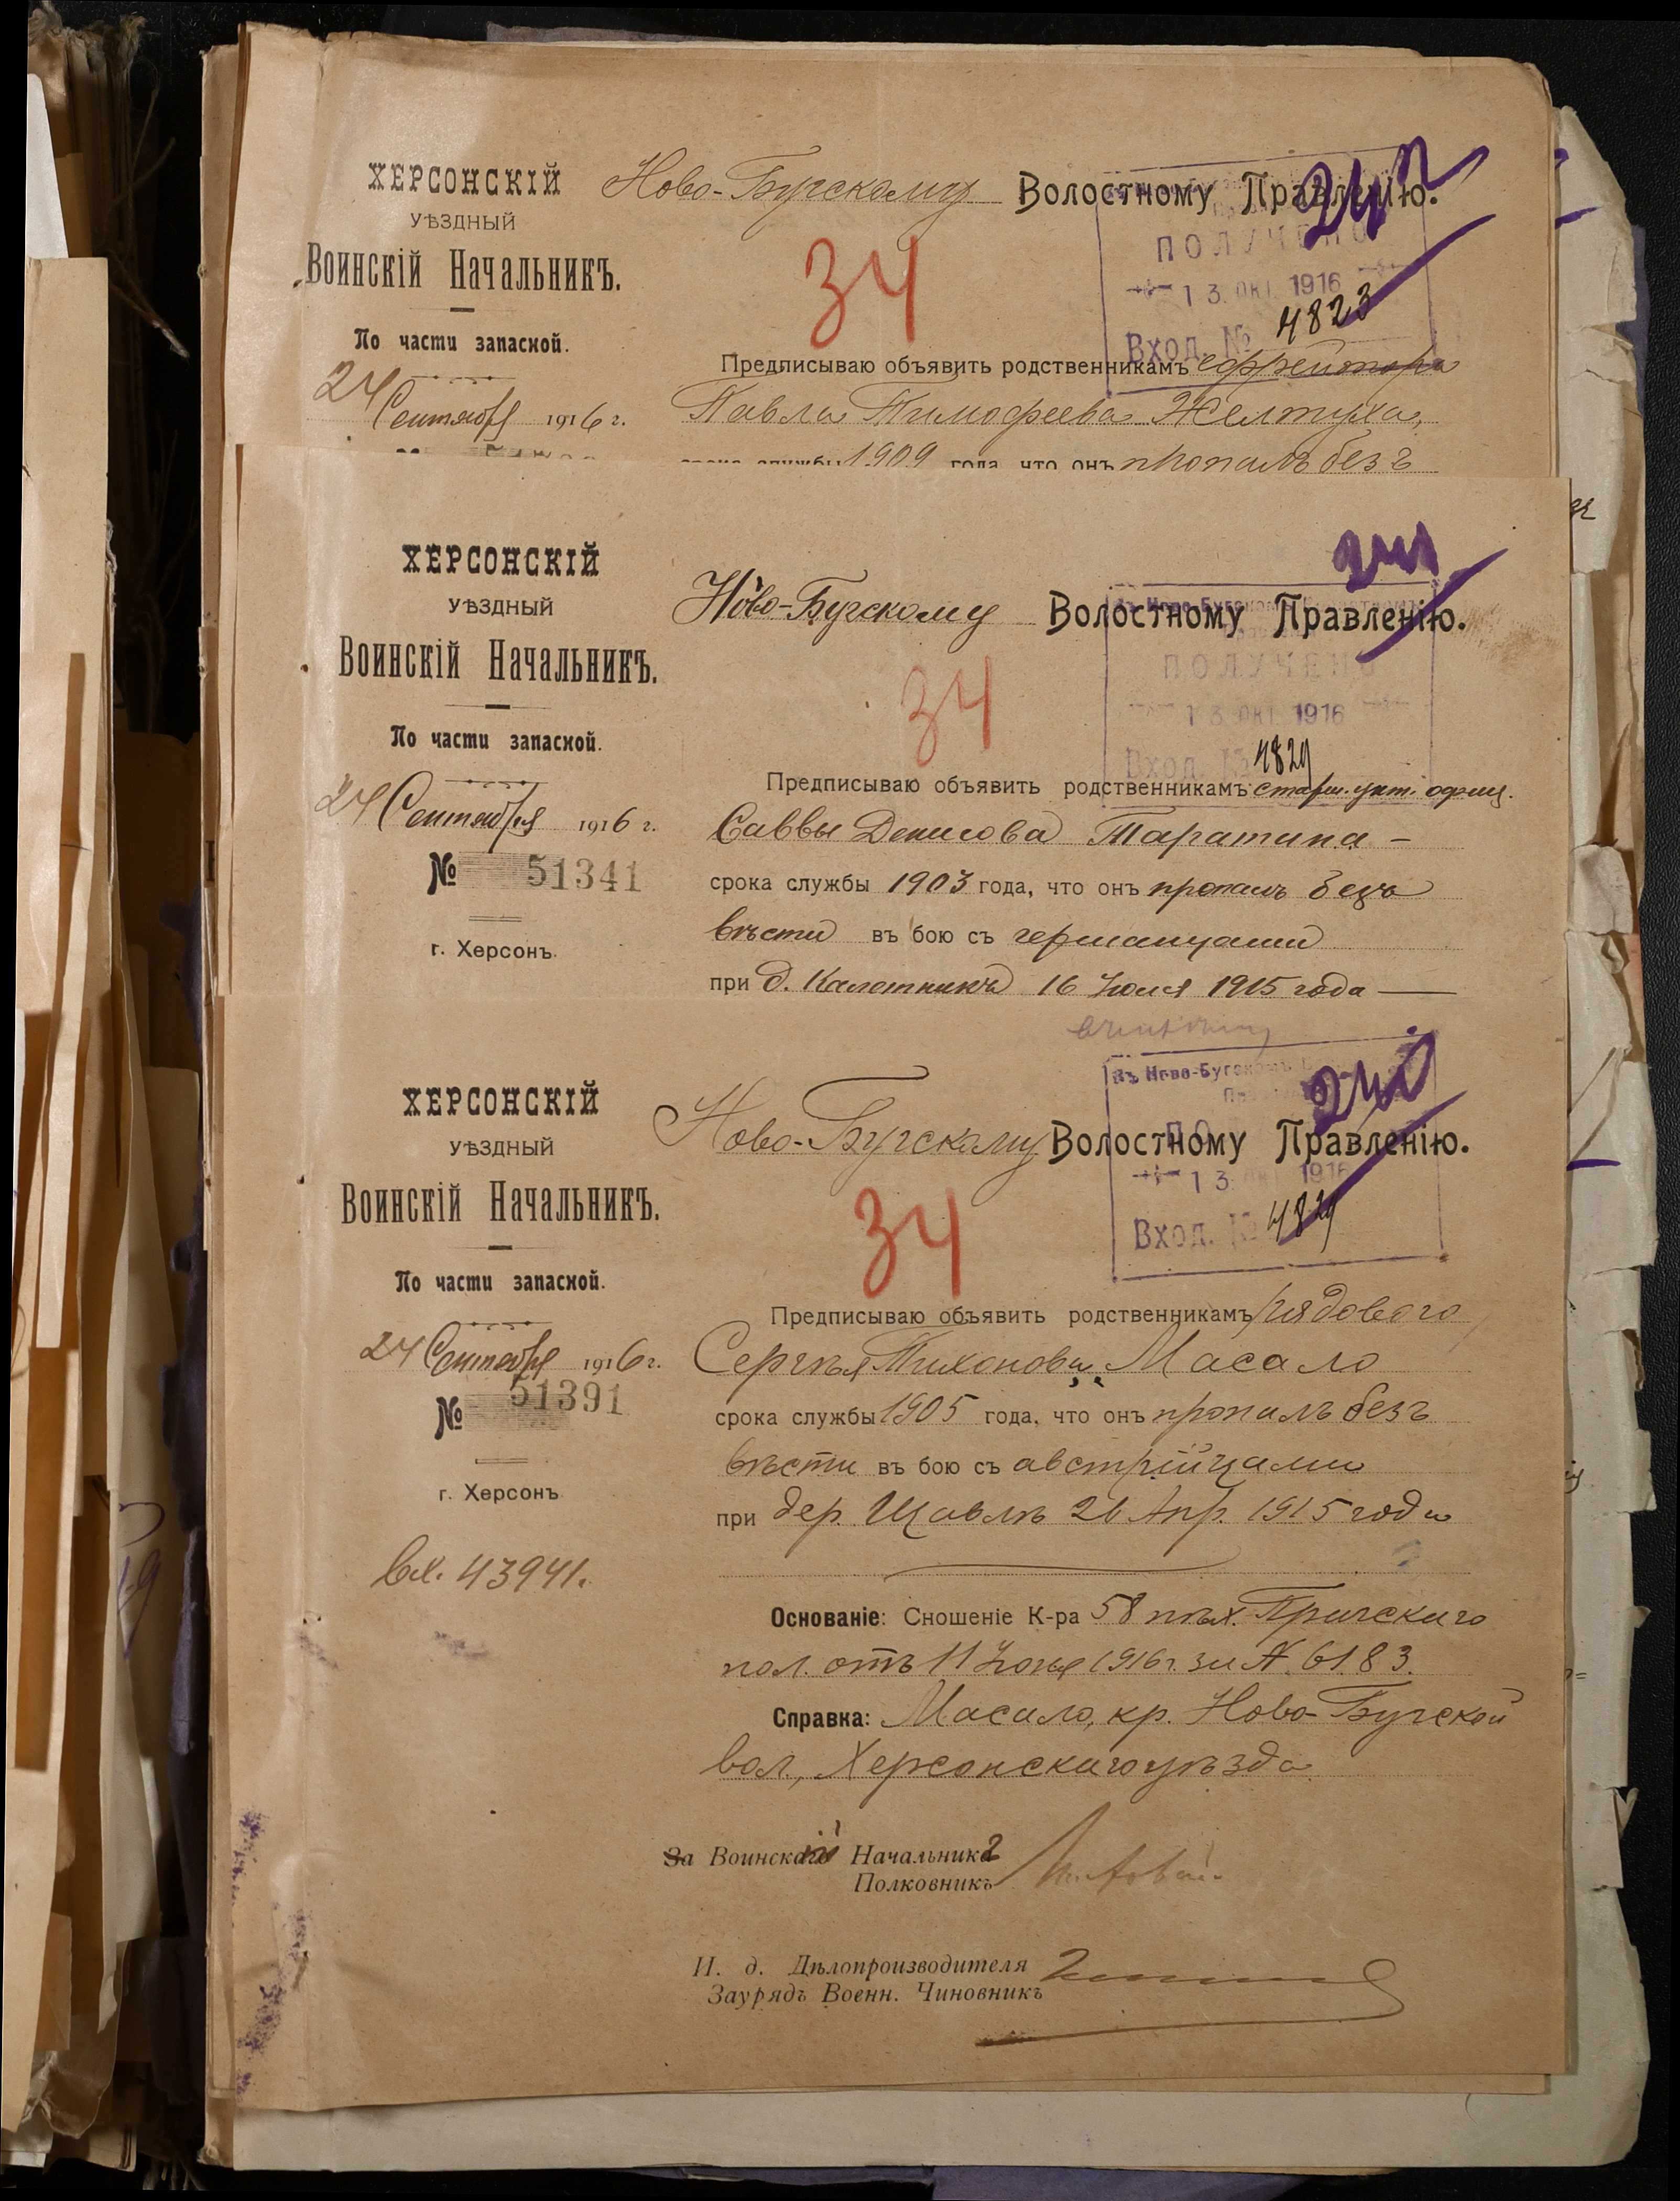 ХЕРСОНСКІЙ
УѢЗДНЫЙ
Воинскій Начальникъ.
По части запасной.
24 Сентября 1916 г.
Ново-Бугскому Волостному Правленію.
34
ПОЛУЧЕНО
13 ОКТ 1916
Вход. № 4823
Предписываю объявить родственникамъ ефрейтора
Павла Тимофеева Желтуха,
срока службы 1909 года, что онъ пропалъ безъ
ХЕРСОНСКІЙ
УѢЗДНЫЙ
Воинскій Начальникъ.
По части запасной.
24 Сентября 1916 г.
№ 51341
г. Херсонъ.
Ново-Бугскому Волостному Правленію.
Въ Ново-Бугскомъ
34
ПОЛУЧЕНО
13 ОКТ 1916
Вход. № 4829
Предписываю объявить родственникамъ старш. унт. офиц.
Саввы Денисова Таратина —
срока службы 1903 года, что онъ пропалъ безъ
вѣсти въ бою съ германцами
при д. 16 Іюля 1915 года —
ХЕРСОНСКІЙ
УѢЗДНЫЙ
Воинскій Начальникъ.
По части запасной.
24 Сентября 1916 г.
№ 51391
г. Херсонъ
Вх. 43941.
Въ Ново-Бугскомъ
Ново-Бугскому Волостному Правленію.
13 1916
34
Вход. № 4829
Предписываю объявить родственникамъ рядового
Сергѣя Тихонова Масало
срока службы 1905 года, что онъ пропалъ безъ
вѣсти въ бою съ австрійцами
при дер. Щавлѣ 26 Апр. 1915 года
Основаніе: Сношеніе К-ра 58 пѣх. Прагскаго
пол. отъ 11 1916 г. за №. 6183.
Справка: Масало, кр. Ново-Бугской
вол., Херсонскаго уѣзда
За Воинскій Начальникъ
Полковникъ
И. д. Дѣлопроизводителя
Заурядъ Военн. Чиновникъ